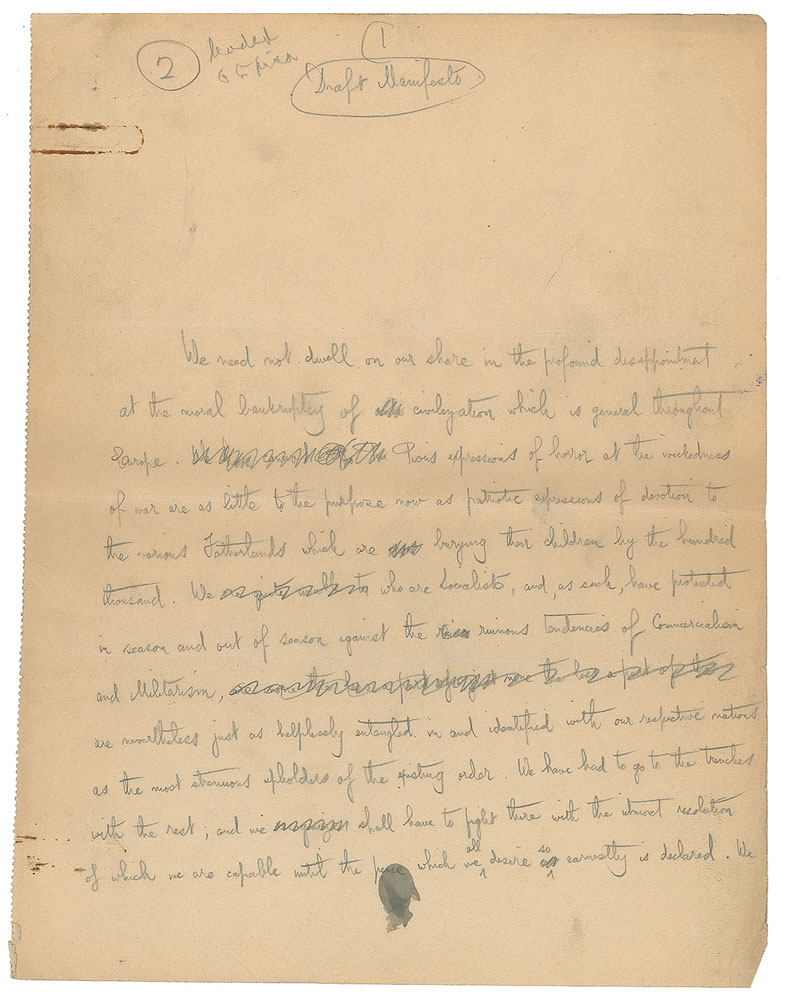 1
2
leaded
Draft Manifesto
We need not dwell on our share in the profound disappointment
at the moral bankruptcy of civilization which is general throughout
Europe. Pious expressions of horror at the wickedness
of war are as little to the purpose now as patriotic expressions of devotion to
the various Fatherlands which are burying their children by the hundred
thousand. We who are Socialists, and, as such, have protested
in season and out of season against the ruinous tendencies of Commercialism
and Militarism,
are nevertheless just as helplessly entangled in and identified with our respective nations
as the most strenuous upholders of the existing order. We have had to go to the trenches
with the rest; and we shall have to fight there with the utmost resolution
of which we are capable until the peace which we all desire so earnestly is declared. We